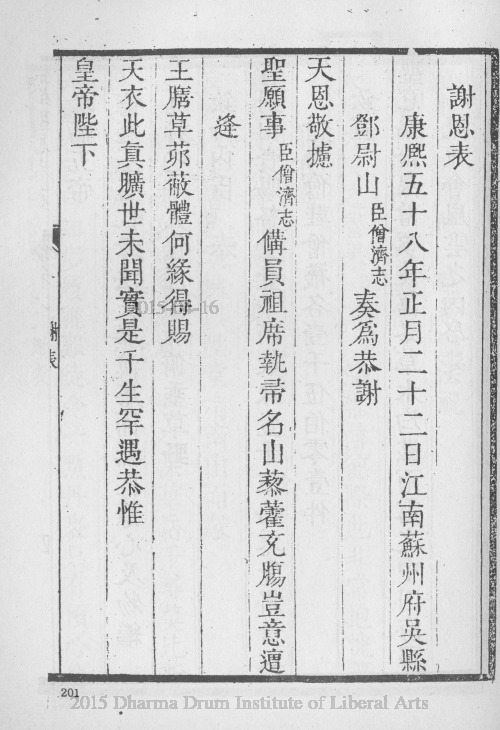 謝恩表
康熈五十八年正月二十二日江南蘇州府吳縣
鄧尉山臣僧濟志奏爲恭謝
天恩敬攄
聖願事臣僧濟志備員祖席執帚名山藜藿充膓豈意遭
逢
王膳草茆蔽體何緣得賜
天衣此眞曠世未聞實是千生罕遇恭惟
皇帝陛下
謝表
201
2015-04-16
2015 Dharma Drum Institute of Liberal Arts